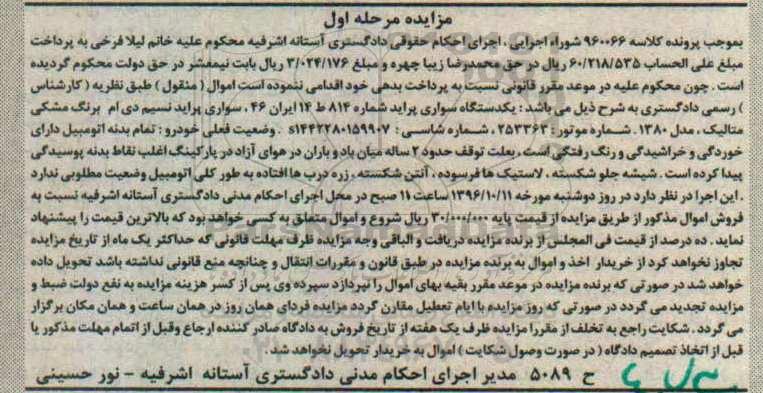 مزایده مرحله اول
بموجب پرونده کلاسه ۹۶۰۰۶۶ شوراء اجرایی ، اجرای احکام حقوقی دادگستری آستانه اشرفیه محکوم علیه خانم لیلا فرخی به پرداخت
مبلغ علی الحساب ۶۰/۲۱۸/۵۳۵ ریال در حق محمدرضا زیبا چهره و مبلغ ۳/۰۲۴/۱۷۶ ریال بابت نیمعشر در حق دولت محکوم گردیده
است . چون محکوم علیه در موعد مقرر قانونی نسبت به پرداخت بدهی خود اقدامی ننموده است اموال ( منقول ) طبق نظریه ( کارشناس
) رسمی دادگستری به شرح ذیل می باشد : یکدستگاه سواری پراید شماره ۸۱۴ ط ۱۴ ایران ۴۶ . سواری پراید نسیم دی ام برنگ مشکی
متالیک ، مدل ۱۳۸۰ . شماره موتور : ۲۵۳۳۶۳ ، شماره شاسی : s۱۴۴۲۲۸۰۱۵۹۹۰۷ . وضعیت فعلی خودرو : تمام بدنه اتومبیل دارای
خوردگی و خراشیدگی و رنگ رفتگی است ، بعلت توقف حدود ۲ ساله میان باد و باران در هوای آزاد در پارکینگ اغلب نقاط بدنه پوسیدگی
پیدا کرده است . شیشه جلو شکسته ، لاستیک ها فرسوده ، آنتن شکسته ، زره درب ها افتاده به طور کلی اتومبیل وضعیت مطلوبی ندارد
. این اجرا در نظر دارد در روز دوشنبه مورخه ۱۳۹۶/۱۰/۱۱ ساعت ۱۱ صبح در محل اجرای احکام مدنی دادگستری آستانه اشرفیه نسبت به
فروش اموال مذکور از طریق مزایده از قیمت پایه ۳۰/۰۰۰/۰۰۰ ریال شروع و اموال متعلق به کسی خواهد بود که بالاترین قیمت را پیشنهاد
نماید . ده درصد از قیمت فی المجلس از برنده مزایده دریافت و الباقی وجه مزایده ظرف مهلت قانونی که حداکثر یک ماه از تاریخ مزایده
تجاوز نخواهد کرد از خریدار اخذ و اموال به برنده مزایده در طبق قانون و مقررات انتقال و چنانچه منع قانونی نداشته باشد تحویل داده
خواهد شد در صورتی که برنده مزایده در موعد مقرر بقیه بهای اموال را نپردازد سپرده وی پس از کسر هزینه مزایده به نفع دولت ضبط و
مزایده تجدید می گردد در صورتی که روز مزایده با ایام تعطیل مقارن گردد مزایده فردای همان روز در همان ساعت و همان مکان برگزار
می گردد . شکایت راجع به تخلف از مقررا مزایده ظرف یک هفته از تاریخ فروش به دادگاه صادر کننده ارجاع وقبل از اتمام مهلت مذکور یا
قبل از اتخاذ تصمیم دادگاه ( در صورت وصول شکایت ) اموال به خریدار تحویل نخواهد شد .
ح ۵۰۸۹ مدیر اجرای احکام مدنی دادگستری آستانه اشرفیه - نور حسینی